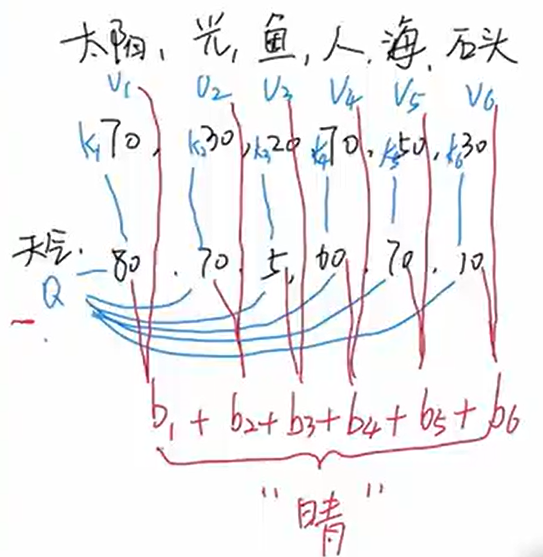 太阳, 光, 鱼, 人, 海, 石头
V1 V2 V3 V4 V5 V6
K1 70, K2 30, K3 20, K4 70, K5 50, K6 30
天气. 80, 70, 5, 60, 70, 10
Q
b1 + b2 + b3 + b4 + b5 + b6
"晴"